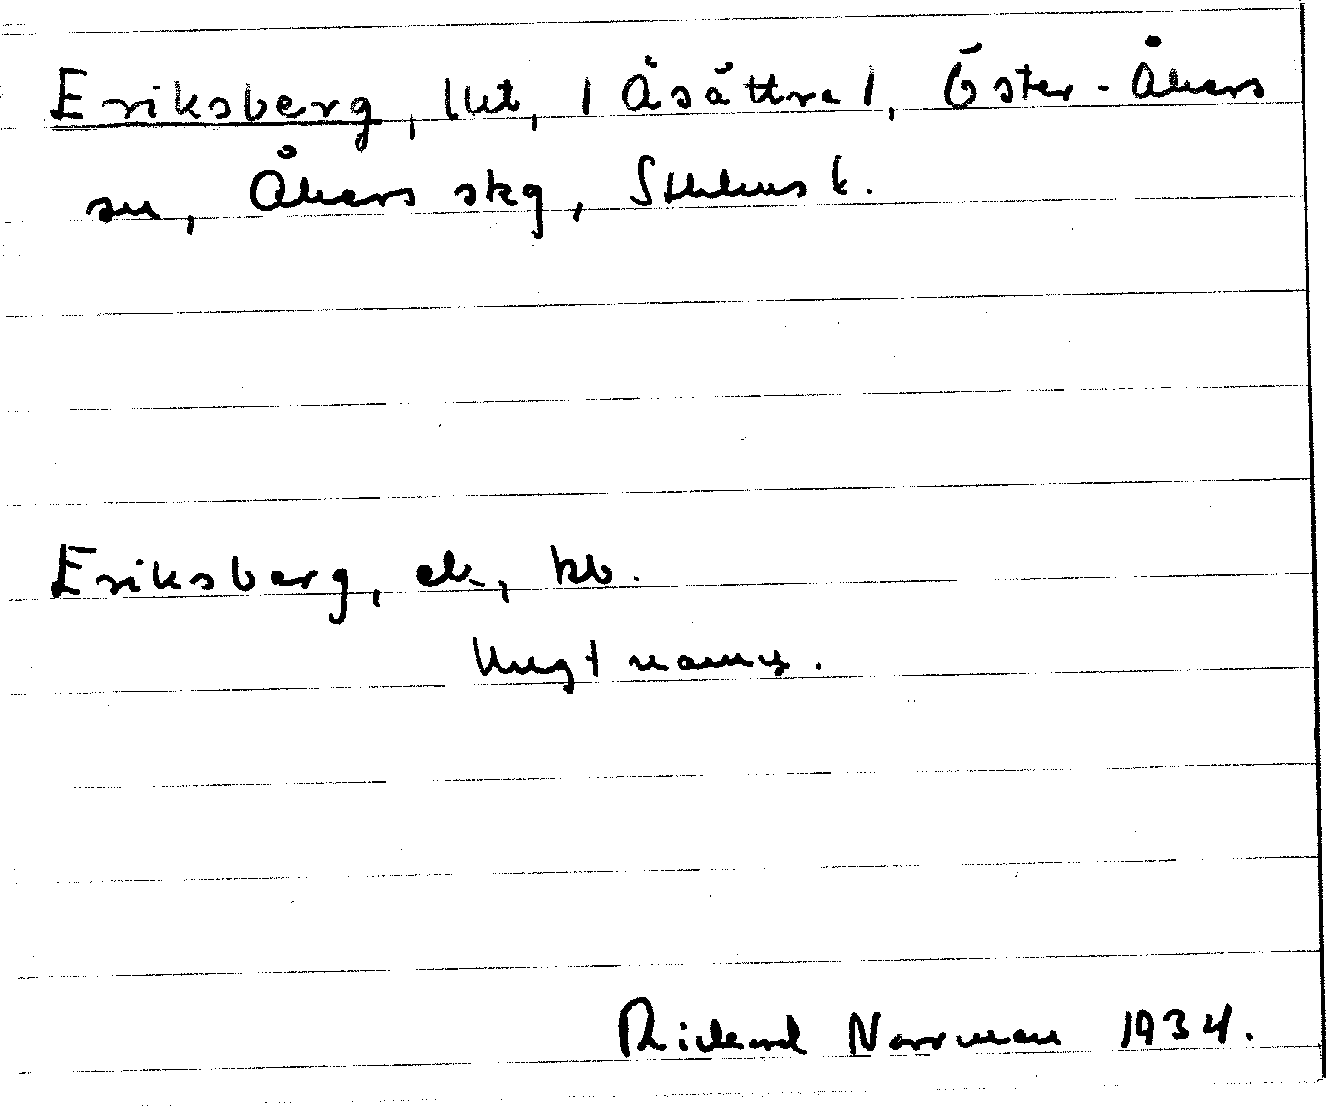 Eriksberg, lht, / Åsättra /, Öster-Åkers
sn, Åkers skg, Sthlms l.
Eriksberg, ek, kb.
Ungt namn.
Rickard Norrman 1934.